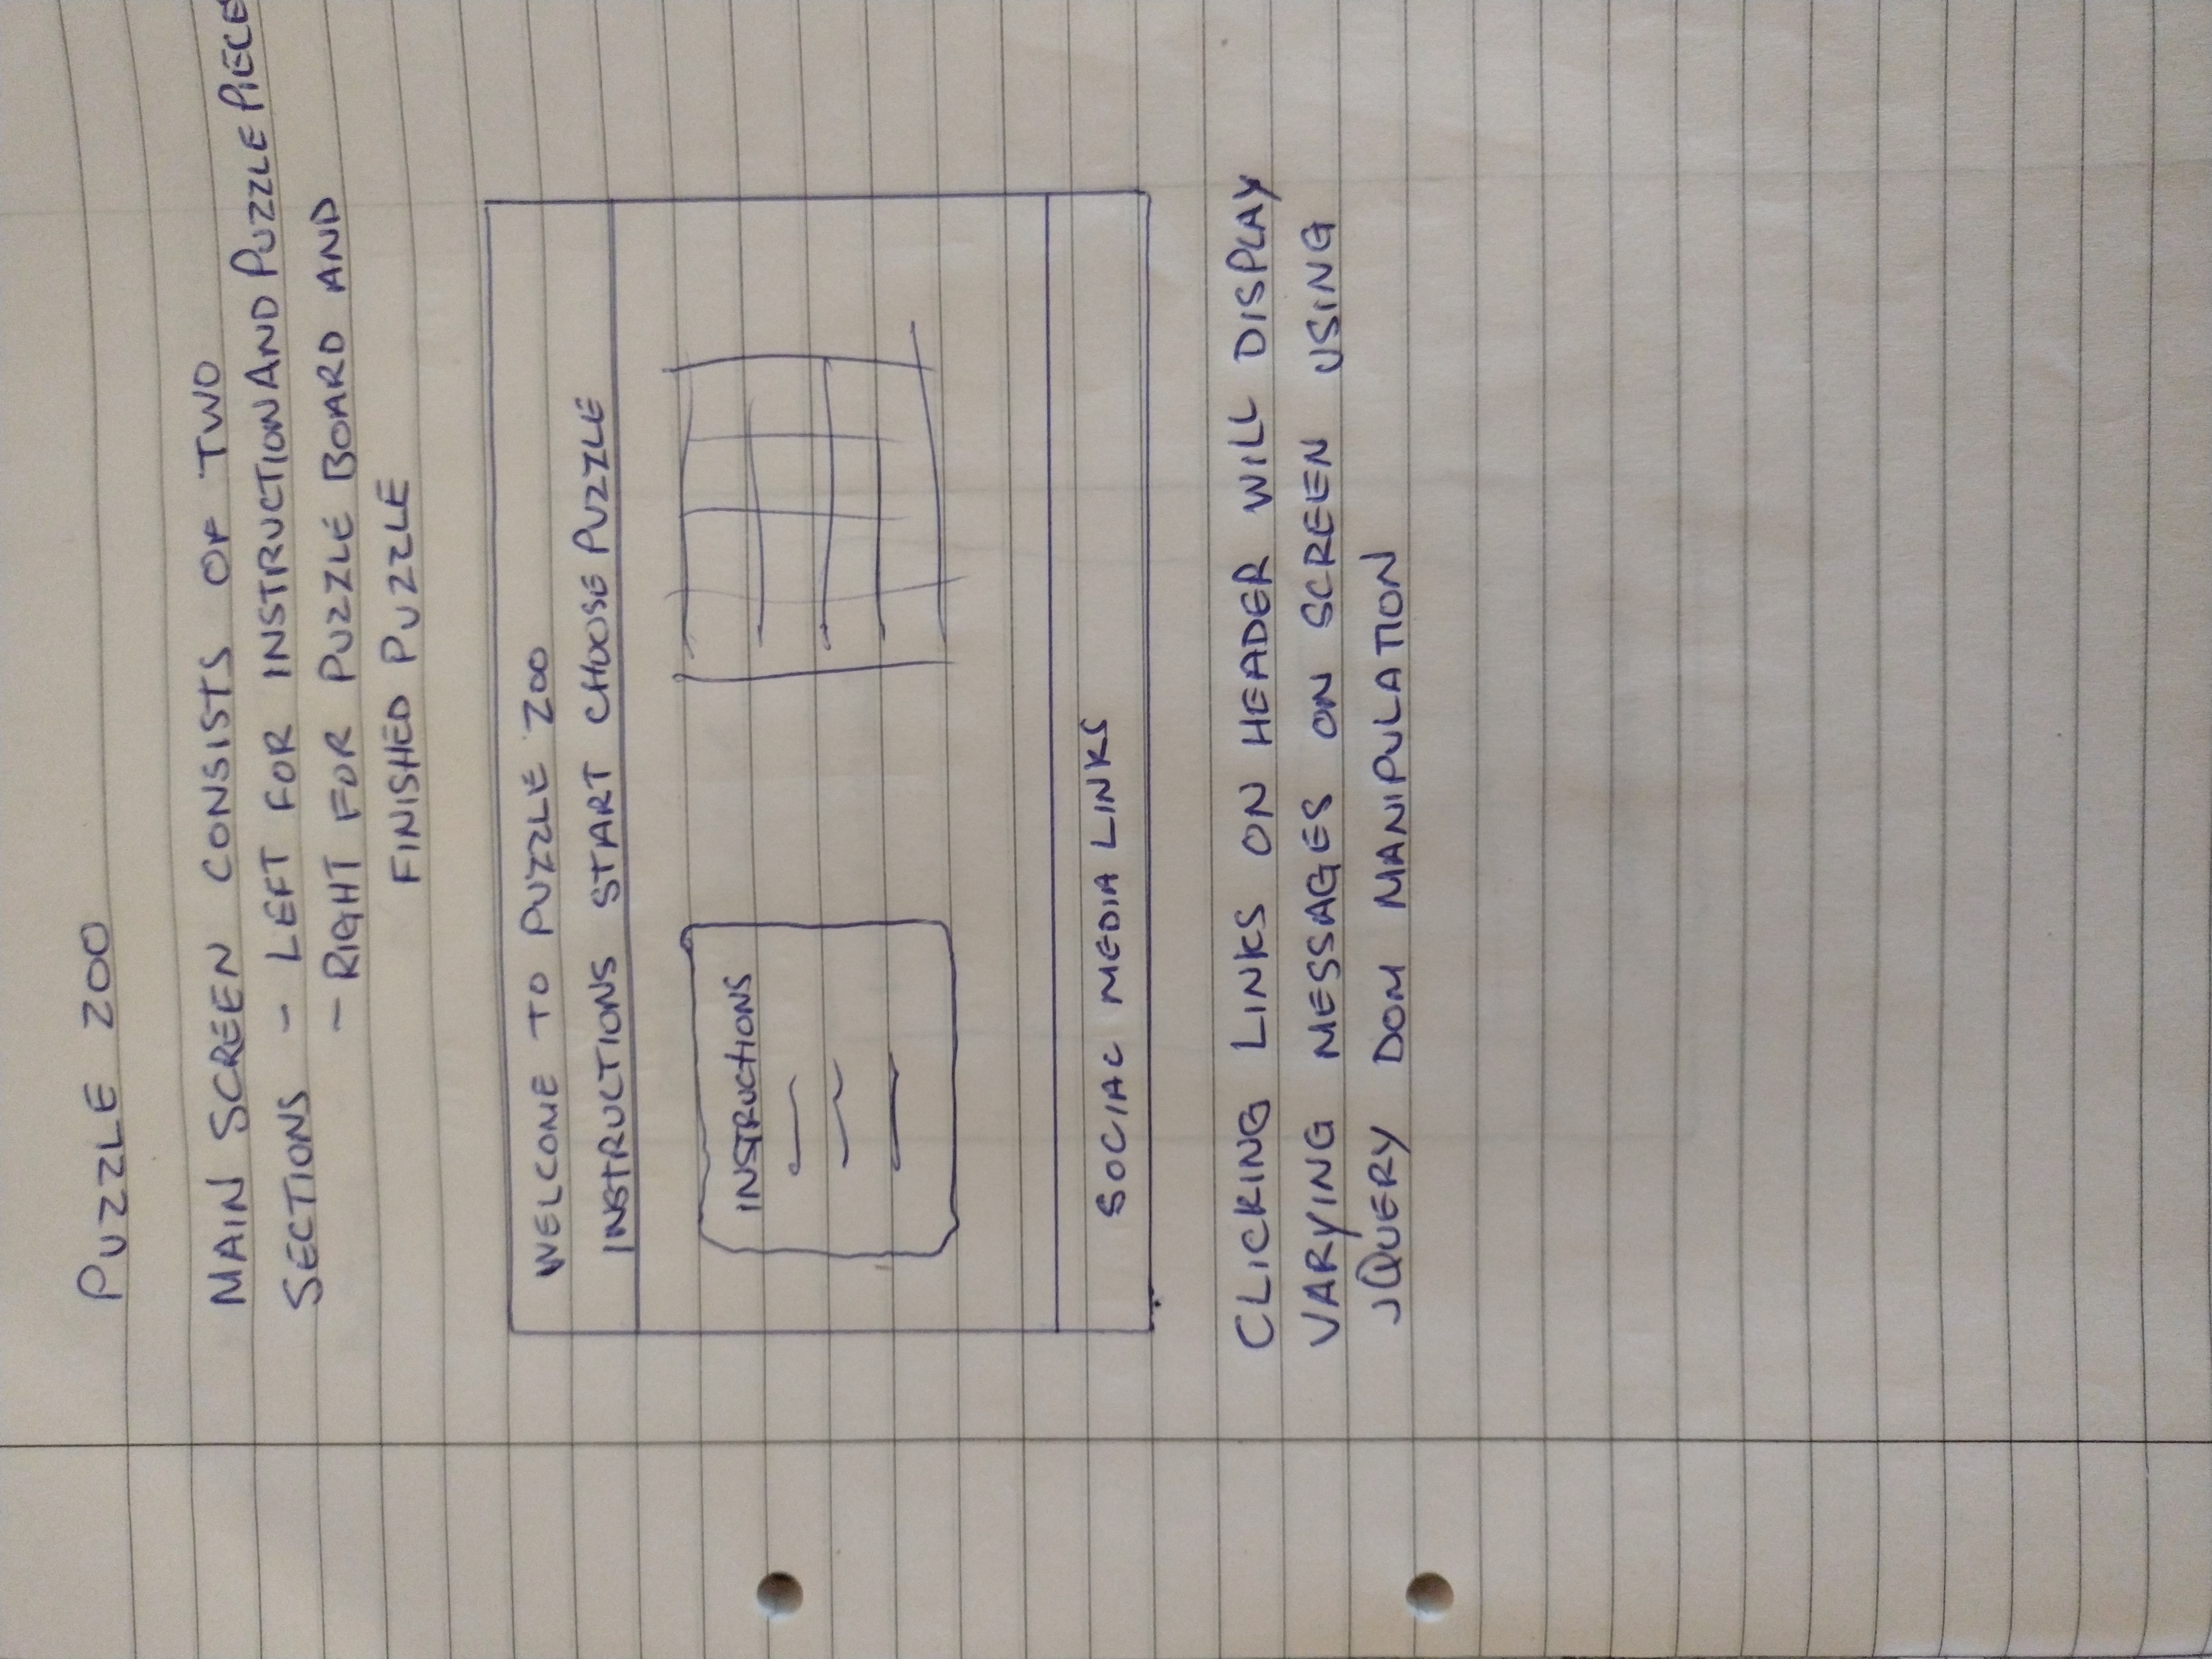 PUZZLE ZOO
MAIN SCREEN CONSISTS OF TWO
SECTIONS - LEFT FOR INSTRUCTION AND PUZZLE PIECE
- RIGHT FOR PUZZLE BOARD AND
FINISHED PUZZLE
WELCOME TO PUZZLE ZOO
INSTRUCTIONS START CHOOSE PUZZLE
INSTRUCTIONS
SOCIAL MEDIA LINKS
CLICKING LINKS ON HEADER WILL DISPLAY
VARYING MESSAGES ON SCREEN USING
JQUERY DOM MANIPULATION